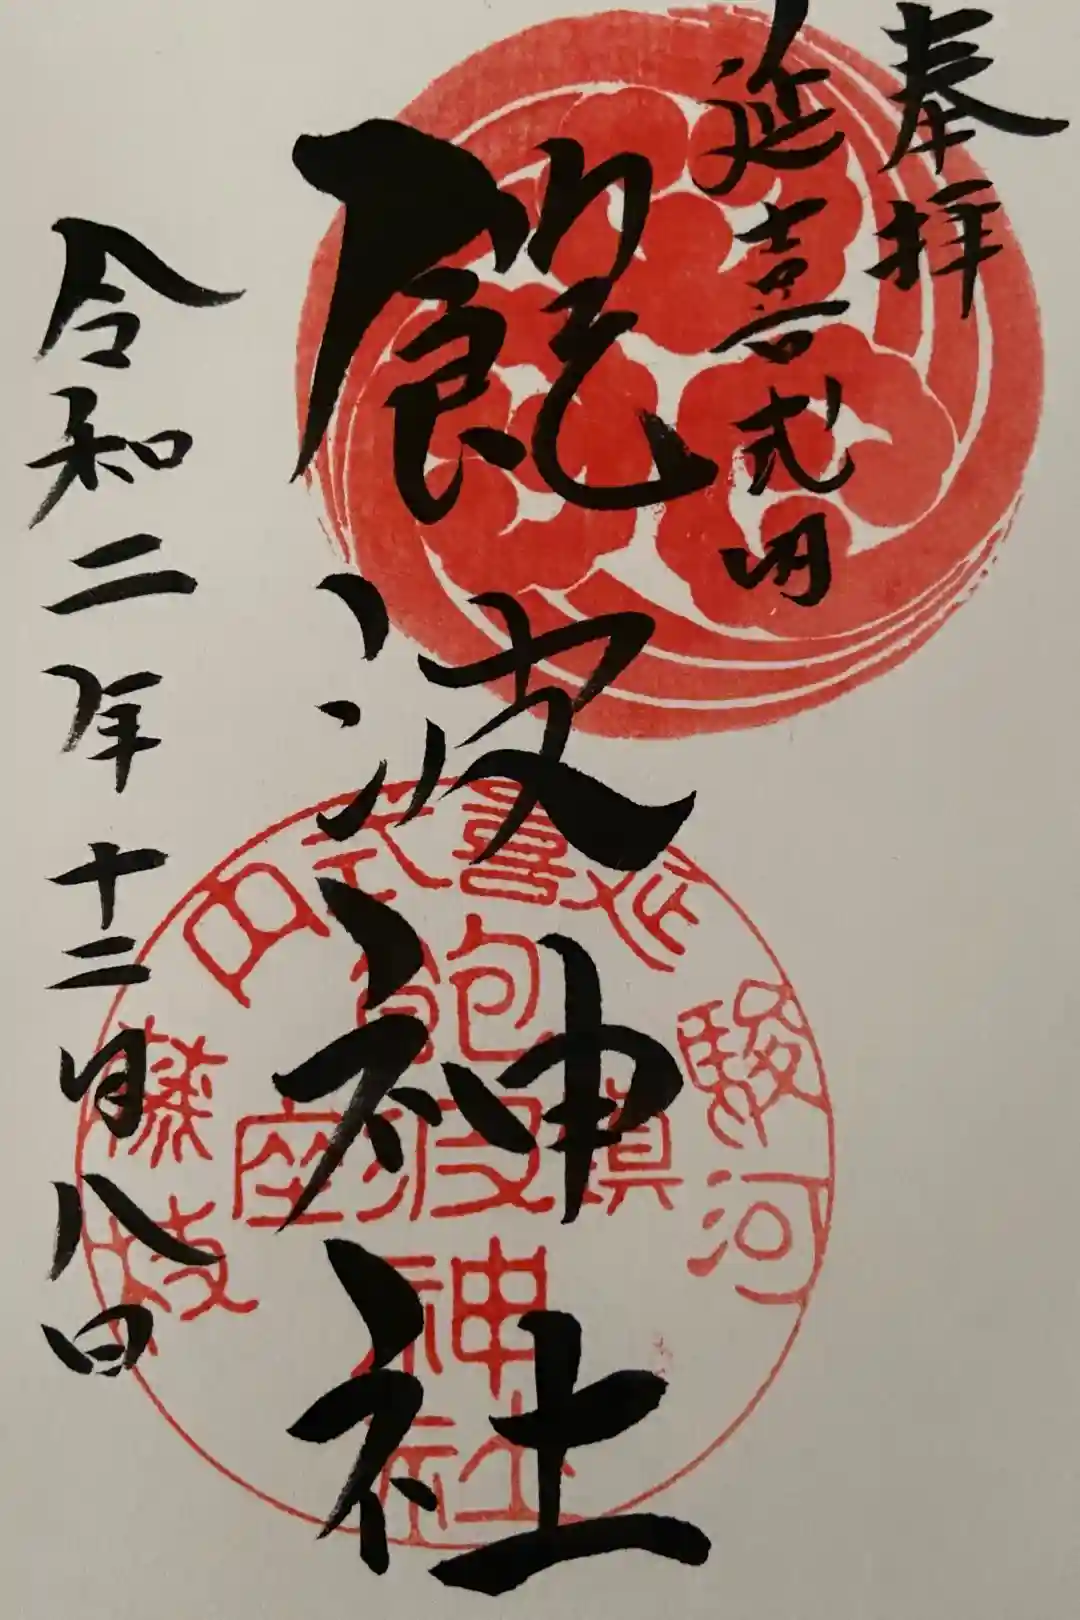 奉拝
延喜式内
飽波神社
令和二年十二月八日
駿河
延喜式内
藤枝
鎮座
飽波神社